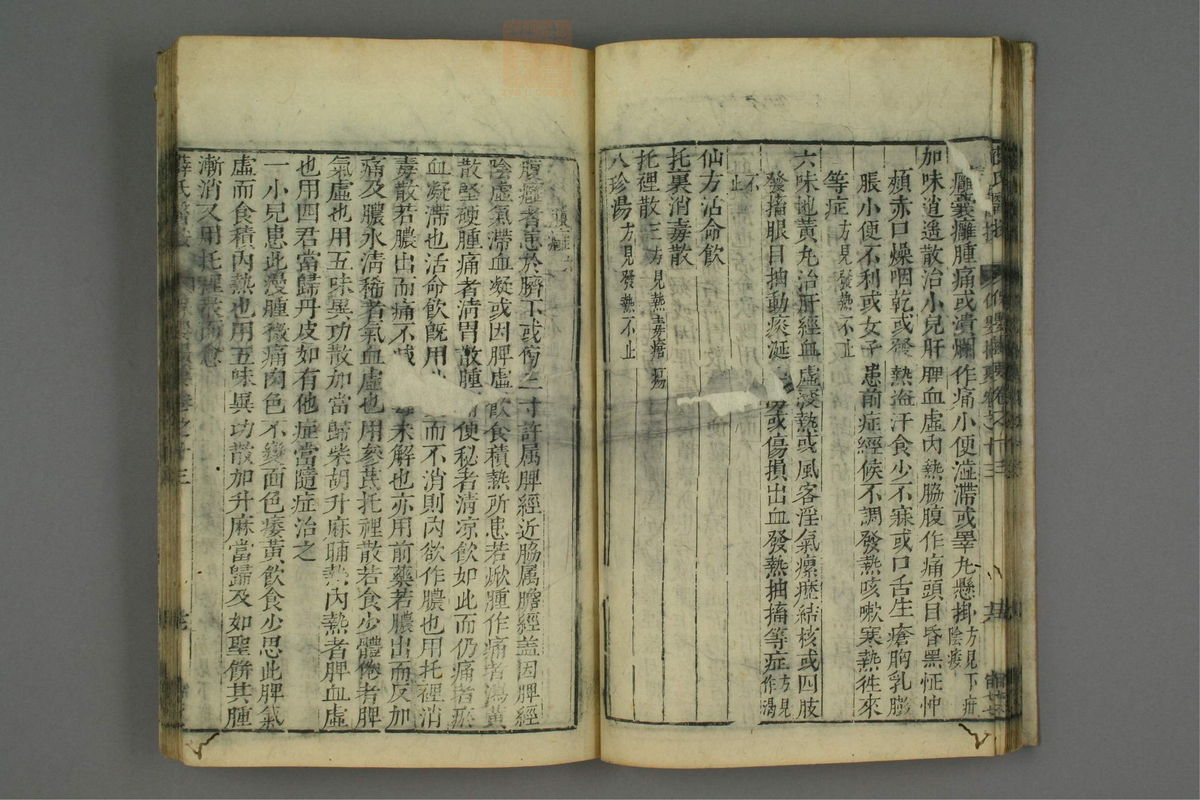 癰囊癰腫痛或潰爛作痛小便澁滯或睪丸懸掛方見下疳陰痿
加味逍遙散治小兒肝脾血虛內熱脇腹作痛頭目昏黑怔忡
頰赤口燥咽乾或發熱盜汗食少不寐或口舌生瘡胸乳膨
脹小便不利或女子患前症經候不調發熱咳嗽寒熱徃來
等症方見發熱不止
六味地黃丸治肝經血虛發熱或風客淫氣瘰癧結核或四肢
發搐眼目抽動痰涎或傷損出血發熱抽搐等症方見作渴
不止
仙方活命飲
托裏消毒散
托裡散三方見熱毒瘡瘍
八珍湯方見發熱不止
腹癰
腹癰者患於臍下或旁二寸許属脾經近脇属膽經盖因脾經
陰虛氣滯血凝或因脾虛飲食積熱所患若焮腫作痛者湯黃
散堅硬腫痛者清胃散腫便秘者清凉飲如此而仍痛者瘀
血凝滯也活命飲既用而不消則內欲作膿也用托裡消
毒散若膿出而痛不減未解也亦用前藥若膿出而反加
痛及膿水清稀者氣血虛也用參芪托裡散若食少體倦者脾
氣虛也用五味異功散加當歸柴胡升麻晡熱內熱者脾血虛
也用四君當歸丹皮如有他症當隨症治之
一小兒患此漫腫微痛肉色不變面色痿黃飲食少思此脾氣
虛而食積內熱也用五味異功散加升麻當歸及如聖餅其腫
漸消又用托裡散而愈
薛氏醫按 保嬰撮要卷之十三